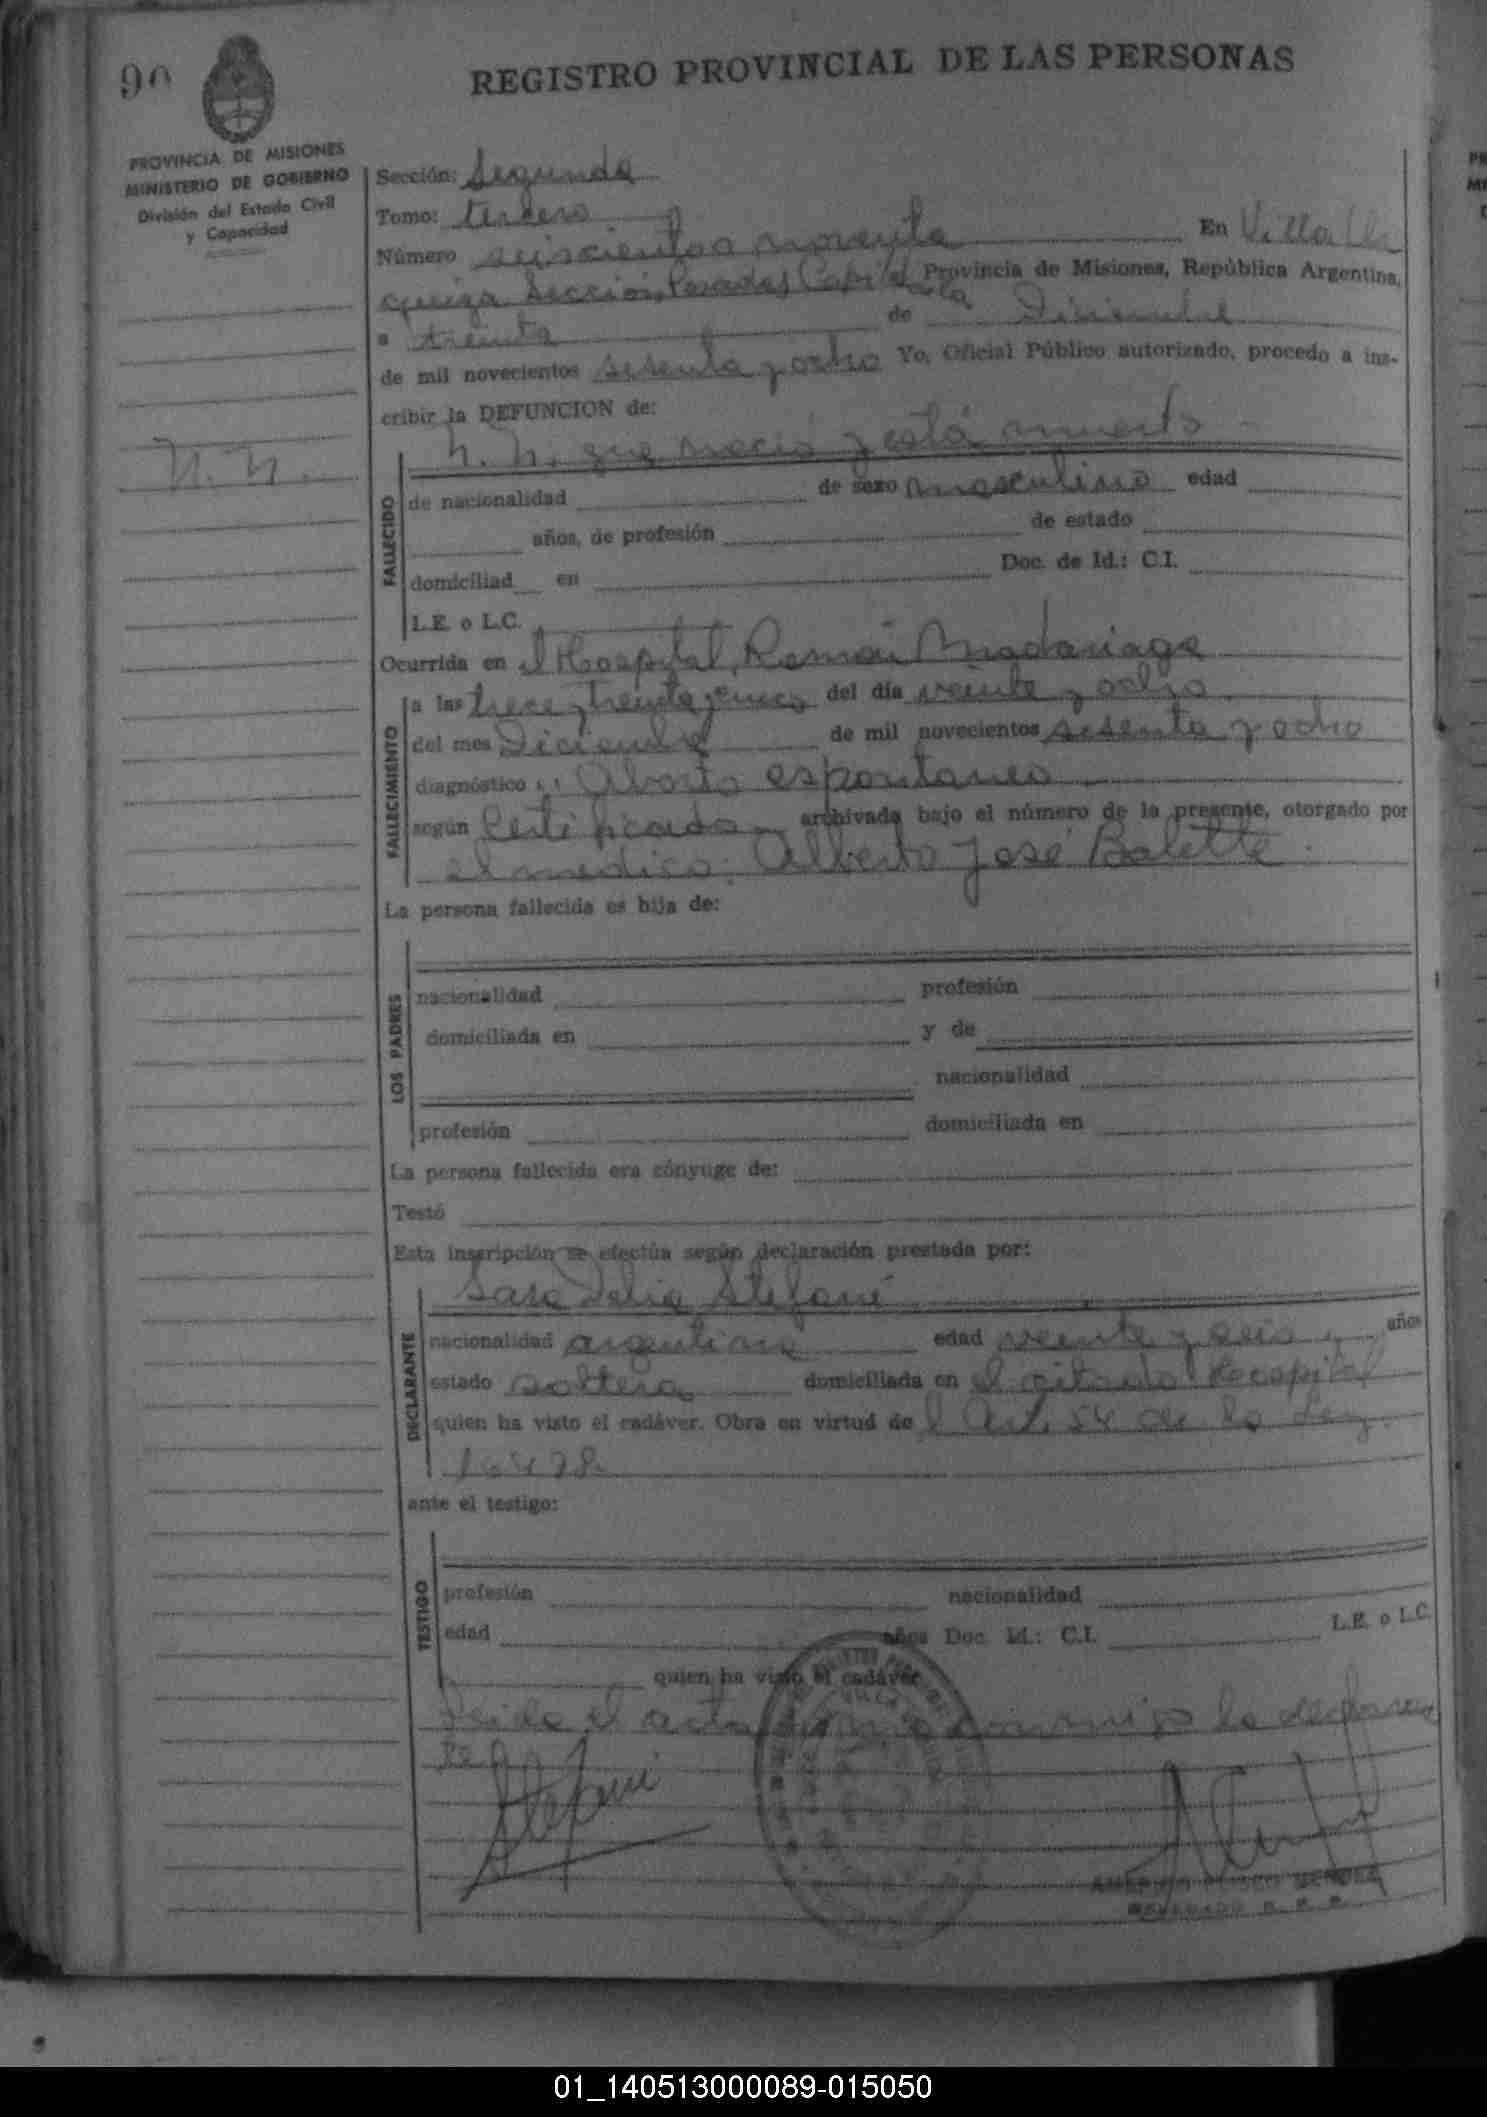 90
REGISTRO PROVINCIAL DE LAS PERSONAS
PROVINCIA DE MISIONES
MINISTERIO DE GOBIERNO
División del Estado Civil
y Capacidad
Sección: Segunda
Tomo: tercero
Número seiscientos noventa En Villa Ur
quiza Sección Posadas Capital de la Provincia de Misiones, República Argentina,
a treinta de Diciembre
de mil novecientos sesenta y ocho Yo, Oficial Público autorizado, procedo a ins-
cribir la DEFUNCION de:
N. N.
N. N. que nació y está muerto
FALLECIDO
de nacionalidad de sexo masculino edad
años, de profesión de estado
domiciliad en Doc. de Id.: C.I.
L.E. o L.C.
Ocurrida en el Hospital Ramón Madariaga
FALLECIMIENTO
a las trece y treinta y cinco del día veinte y ocho
del mes Diciembre de mil novecientos sesenta y ocho
diagnóstico Aborto espontaneo
según Certificado archivada bajo el número de la presente, otorgado por
el medico: Alberto José Balette
La persona fallecida es hija de:
LOS PADRES
nacionalidad profesión
domiciliada en y de
nacionalidad
profesión domiciliada en
La persona fallecida era cónyuge de:
Testó
Esta inscripción se efectúa según declaración prestada por:
DECLARANTE
Sara Delia Stefani
nacionalidad argentina edad veinte y seis años
estado soltera domiciliada en el citado Hospital
quien ha visto el cadáver. Obra en virtud de l Art. 54 de la Ley
16478
ante el testigo:
TESTIGO
profesión nacionalidad
edad años Doc. Id.: C.I. L.E. o L.C.
quien ha visto el cadáver
Leida el acta firma conmigo la declaran
te
Stefani
MENDEZ
DELEGADO R. P. P.
01_140513000089-015050